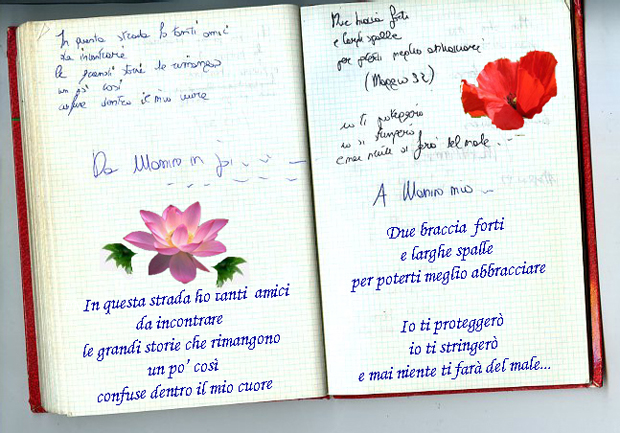 In questa strada ho tanti amici
da incontrare
le grandi storie che rimangono
un po' così
confuse dentro il mio cuore
Da in
In questa strada ho tanti amici
da incontrare
le grandi storie che rimangono
un po' così
confuse dentro il mio cuore
Due braccia forti
e larghe spalle
per poterti meglio abbracciare
io ti proteggerò
io ti stringerò
e mai niente ti farà del male...
A mio ...
Due braccia forti
e larghe spalle
per poterti meglio abbracciare
Io ti proteggerò
io ti stringerò
e mai niente ti farà del male...